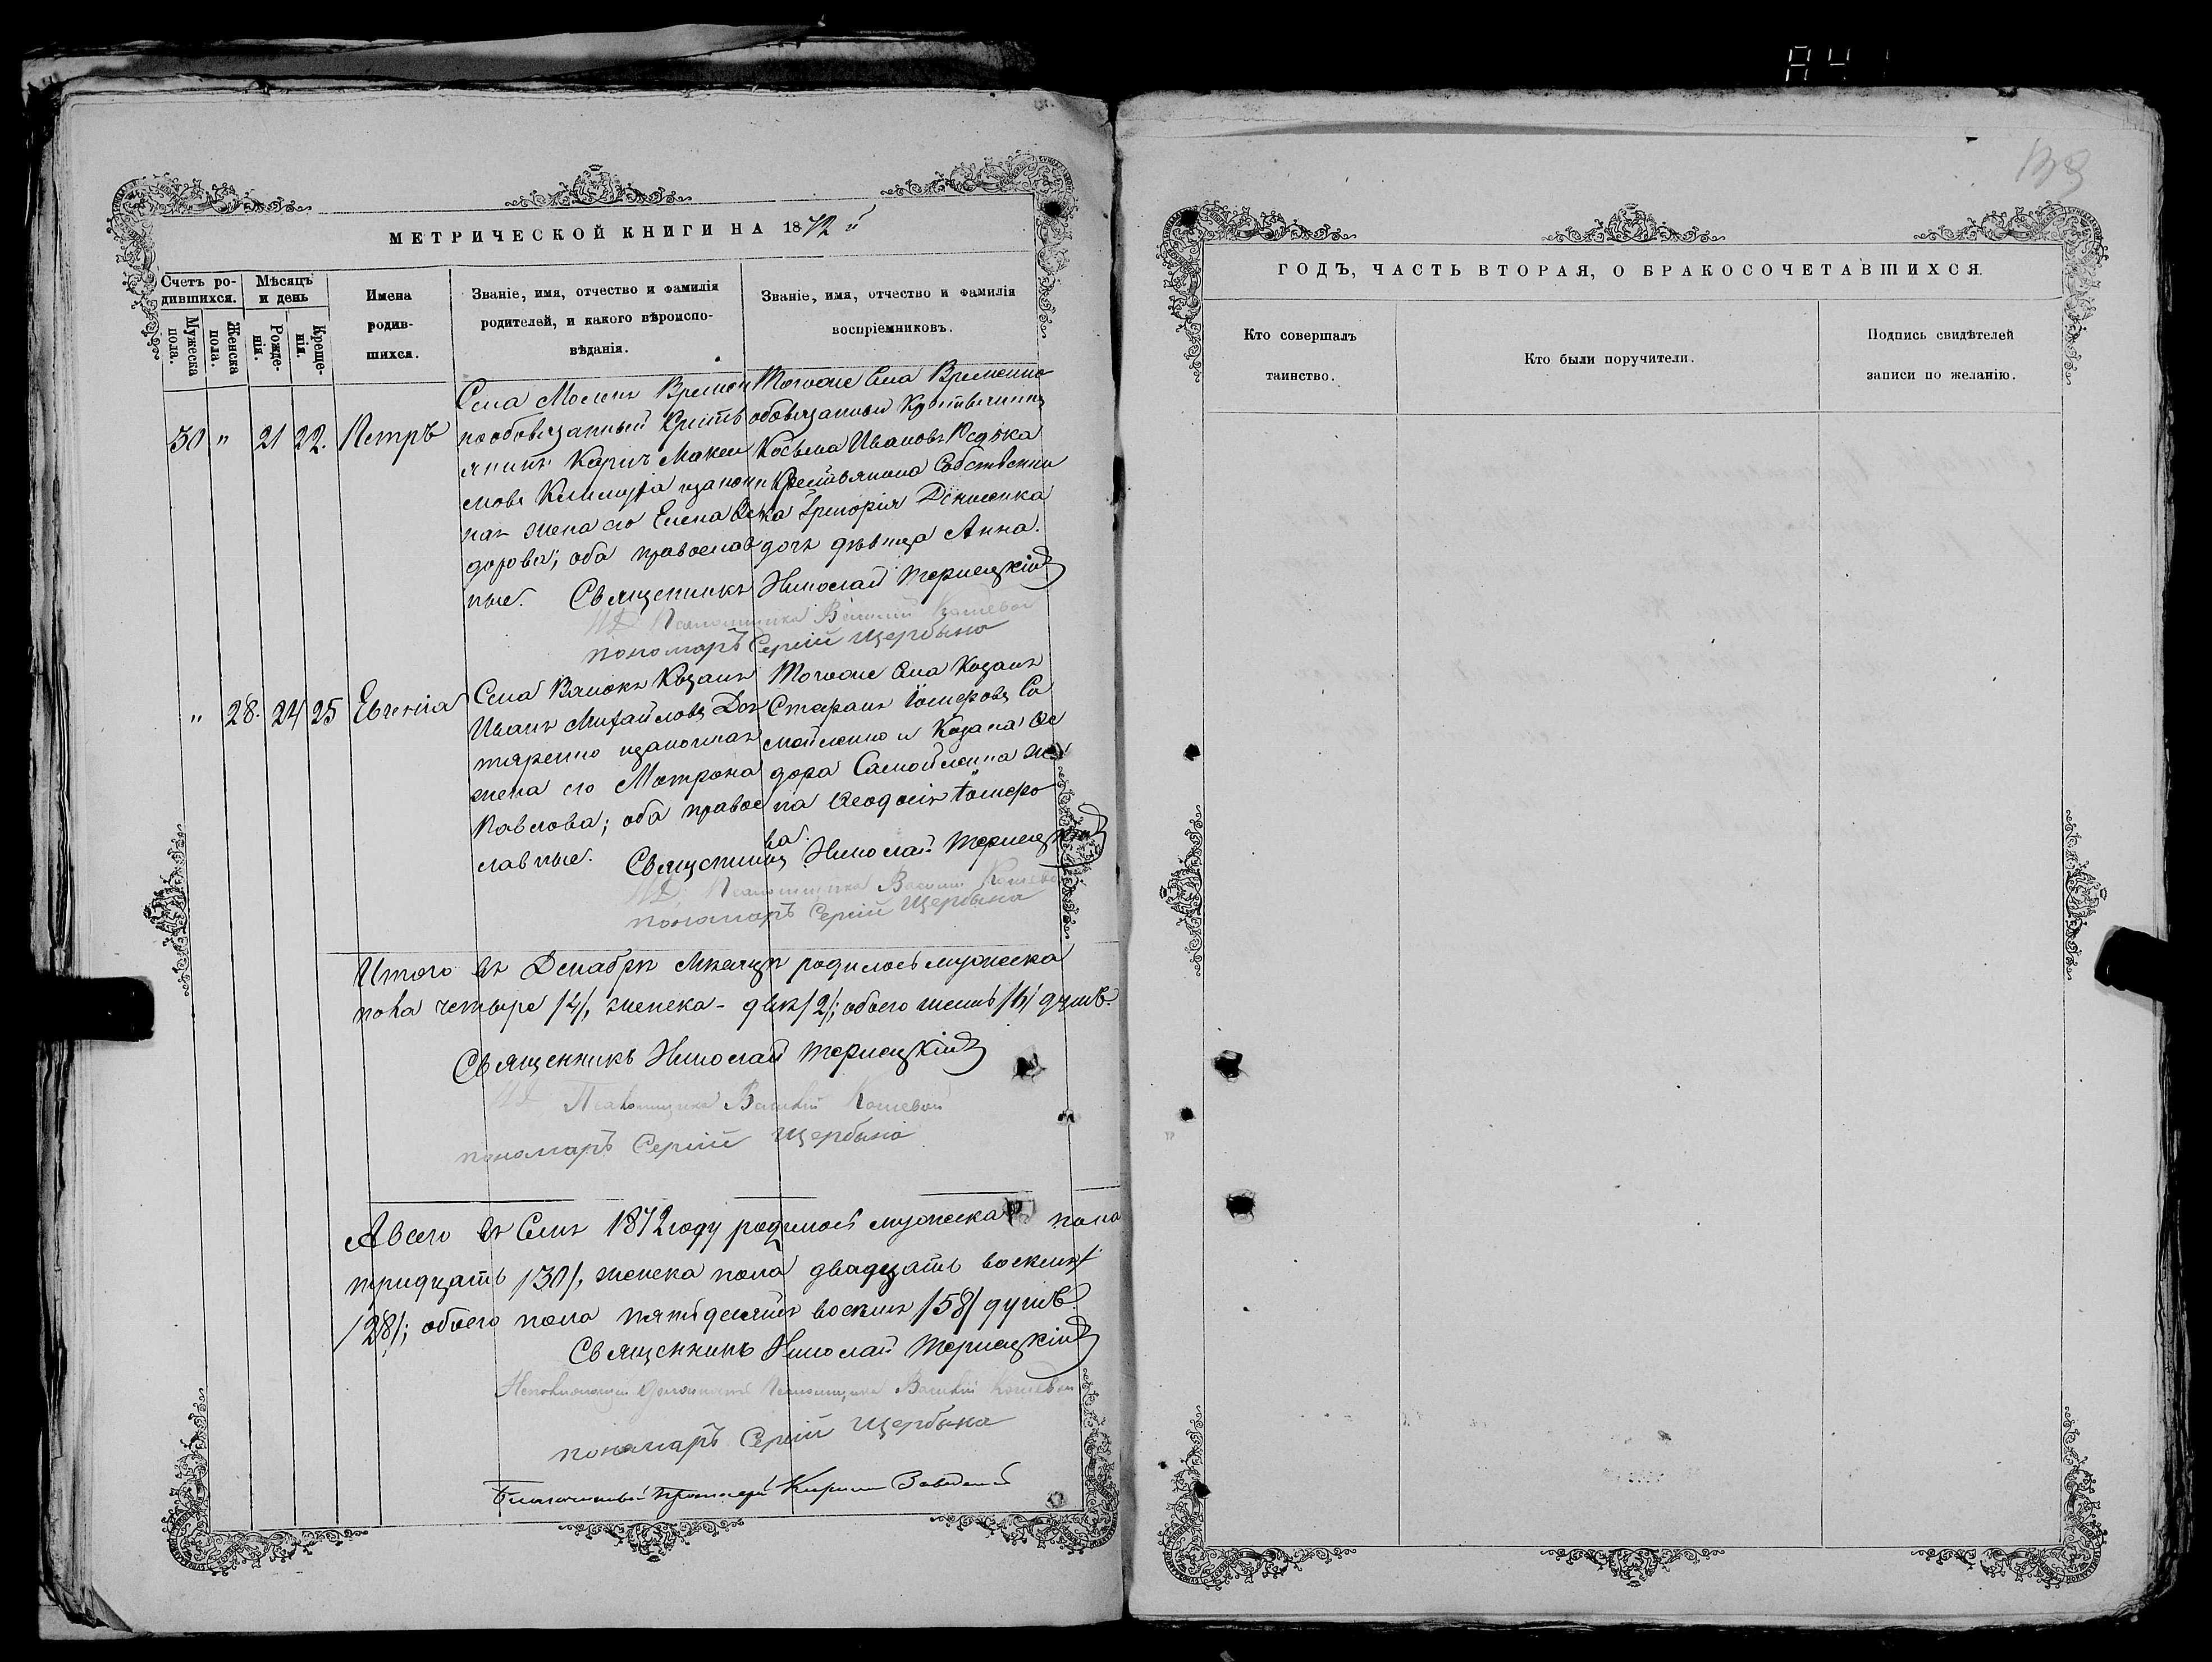 138
МЕТРИЧЕСКОЙ КНИГИ НА 1872 й
Счетъ ро-
дившихся.
Мужеска
пола.
Женска
пола.
Мѣсяцъ
и день
Рожде-
нія.
Креще-
нія.
Имена
родив-
шихся.
Званіе, имя, отчество и фамилія
родителей, и какого вѣроиспо-
вѣданія.
Званіе, имя, отчество и фамилія
воспріемниковъ.
30 " 21 22. Петръ
Села Временн
нообовязанный Кресть
янинъ Карпъ Макси
мовъ и закон
ная жена его Елена Ѳео
дорова; оба православ
ные.
Тогоже Села Временно
обовязанный Крестьянинъ
Косьма Ивановъ Рѣдька
и Крестьянина Собственни
ка Григорія
дочь дѣвица Анна.
Священникъ Николай Тернецкій
ИД Псаломщика Василій Кошевой
пономаръ Сергій Щербына
" 28. 24 25 Евгенія
Села Валокъ Козакъ
Иванъ Михайловъ Дех
тяренко и законная
жена его Матрона
Павлова; оба право
славные.
Тогоже Села Козакъ
Стефанъ Іосифовъ Са
мойленко и Козака Ѳео
дора Самойленка же
на Ѳеодосія Іосифо
ва.
Священникъ Николай Тернецкій
ИД. Псаломщика Василій Кошевой
пономаръ Сергій Щербына
Итого въ Декабрѣ Мѣсяцѣ родилось мужеска
пола четыре /4/, женска - двѣ /2/; обоего шесть /6/ душъ.
Священникъ Николай Тернецкій
ИД Псаломщика Василій Кошевой
пономаръ Сергій Щербына
А всего въ Семъ 1872 году родилось мужеска пола
тридцать /30/, женска пола двадцать восемь
/28/; обоего пола пятьдесятъ восемь /58/ душъ.
Священникъ Николай Тернецкій
должность Псаломщика Василій Кошевой
пономаръ Сергій Щербына
Благочинный Кириллъ
ГОДЪ, ЧАСТЬ ВТОРАЯ, О БРАКОСОЧЕТАВШИХСЯ.
Кто совершалъ
таинство.
Кто были поручители.
Подпись свидѣтелей
записи по желанію.